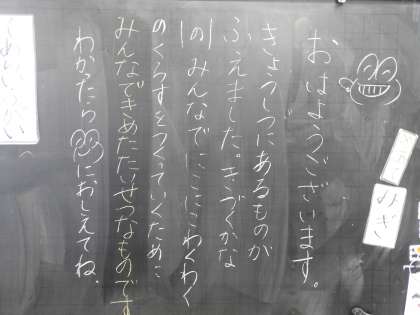 おはようございます。
きょうしつにあるものが
ふえました。きづくかな
1の1みんなでにこにこわくわく
のくらすをつくっていくために
みんなできめたたいせつなものです
わかったら
におしえてね。
みぎ